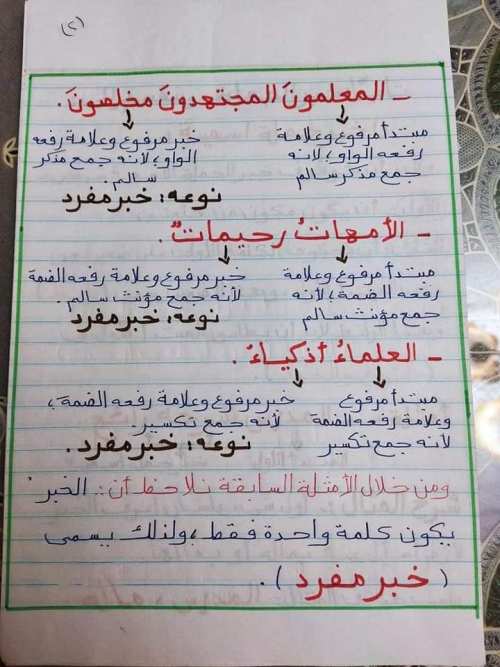 (٢)
- المعلمونَ المجتهدونَ مخلصونَ.
مبتدأ مرفوع وعلامة رفعه الواو؛ لأنه جمع مذكر سالم
خبر مرفوع وعلامة رفعه الواو؛ لأنه جمع مذكر سالم.
نوعه: خبر مفرد
- الأمهاتُ رحيماتٌ.
مبتدأ مرفوع وعلامة رفعه الضمة؛ لأنه جمع مؤنث سالم
خبر مرفوع وعلامة رفعه الضمة لأنه جمع مؤنث سالم.
نوعه: خبر مفرد
- العلماءُ أذكياءُ.
مبتدأ مرفوع وعلامة رفعه الضمة لأنه جمع تكسير
خبر مرفوع وعلامة رفعه الضمة؛ لأنه جمع تكسير.
نوعه: خبر مفرد.
ومن خلال الأمثلة السابقة نلاحظ أن: الخبر
يكون كلمة واحدة فقط، ولذلك يسمى
( خبر مفرد ).